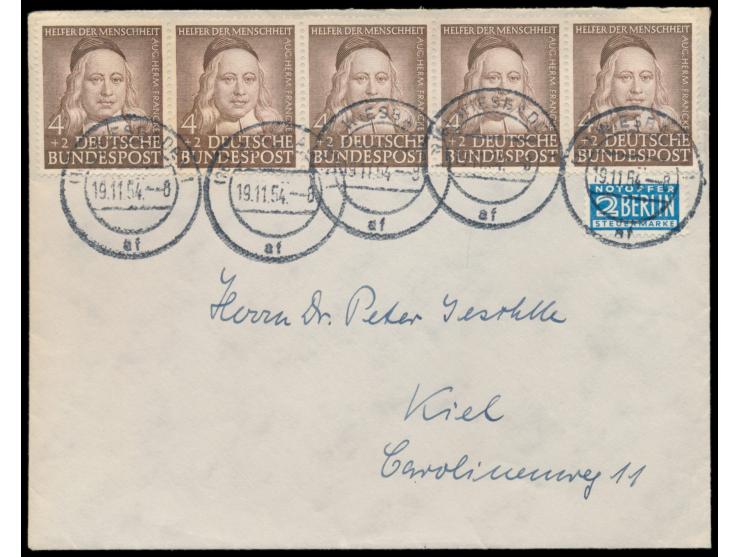 HELFER DER MENSCHHEIT
AUG. HERM. FRANCKE
4
+2 DEUTSCHE
BUNDESPOST
HELFER DER MENSCHHEIT
AUG. HERM. FRANCKE
4
+2 DEUTSCHE
BUNDESPOST
HELFER DER MENSCHHEIT
AUG. HERM. FRANCKE
4
+2 DEUTSCHE
BUNDESPOST
HELFER DER MENSCHHEIT
AUG. HERM. FRANCKE
4
+2 DEUTSCHE
BUNDESPOST
HELFER DER MENSCHHEIT
AUG. HERM. FRANCKE
4
+2 DEUTSCHE
BUNDESPOST
19.11.54.-8
af
19.11.54.-8
af
9.11.54.-9
af
af
19.11.54.-8
af
NOTOPFER
2 BERLIN
STEUERMARKE
Herrn Dr. Peter
Kiel
Carolinenweg 11